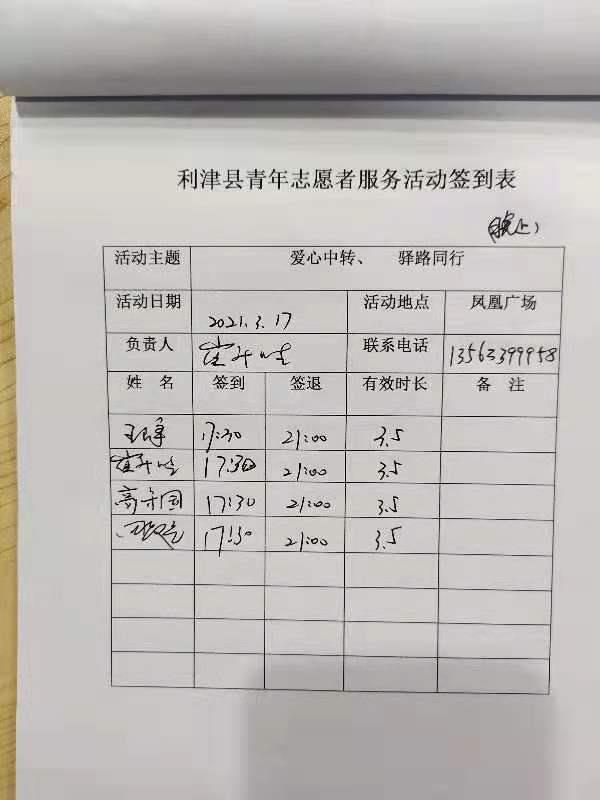 利津县青年志愿者服务活动签到表
(晚上)
活动主题 爱心中转、 驿路同行
活动日期 2021.3.17 活动地点 凤凰广场
负责人 联系电话 13563399958
姓 名 签到 签退 有效时长 备 注
17:30 21:00 3.5
17:30 21:00 3.5
高守国 17:30 21:00 3.5
17:30 21:00 3.5